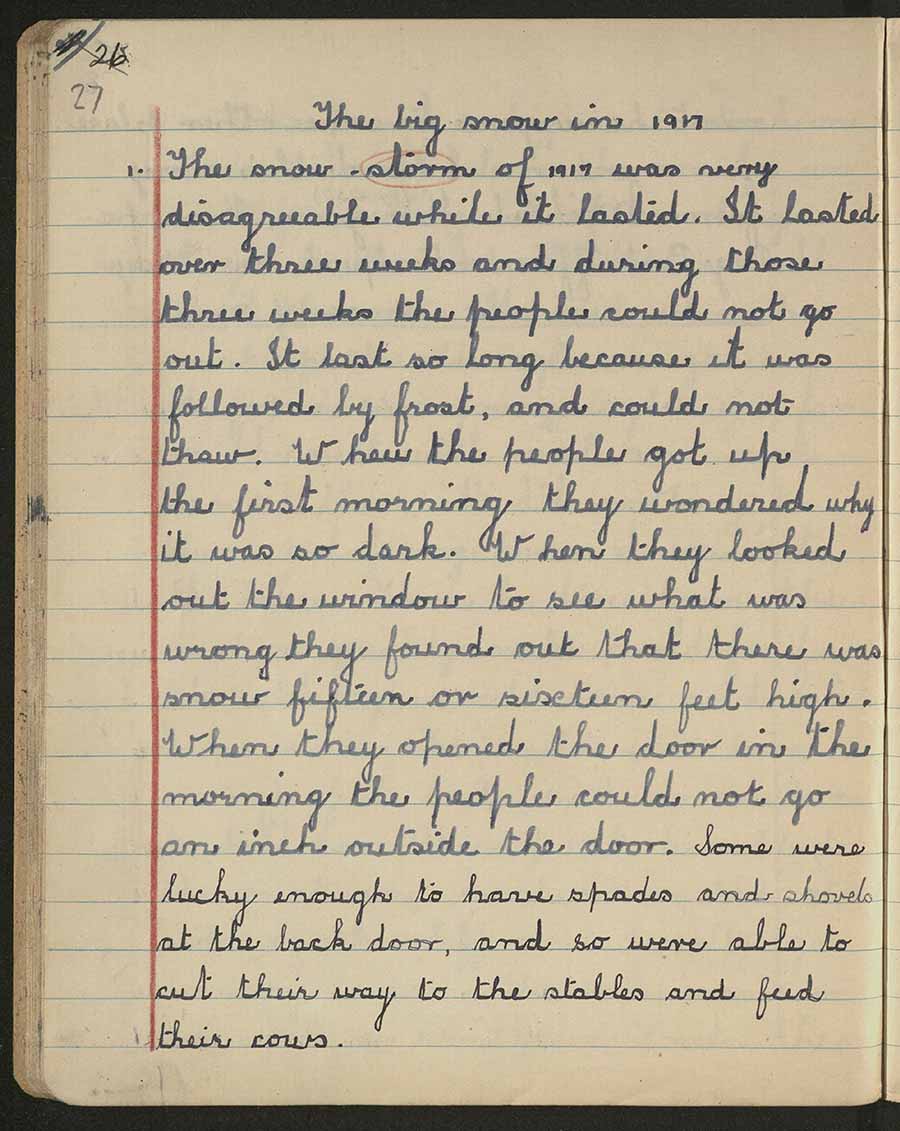 26
27
The big snow in 1917
1. The snow-storm of 1917 was very
disagreeable while it lasted. It lasted
over three weeks and during those
three weeks the people could not go
out. It last so long because it was
followed by frost, and could not
thaw. When the people got up
the first morning they wondered why
it was so dark. When they looked
out the window to see what was
wrong they found out that there was
snow fifteen or sixteen feet high.
When they opened the door in the
morning the people could not go
an inch outside the door. Some were
lucky enough to have spades and shovels
at the back door, and so were able to
cut their way to the stables and feed
their cows.